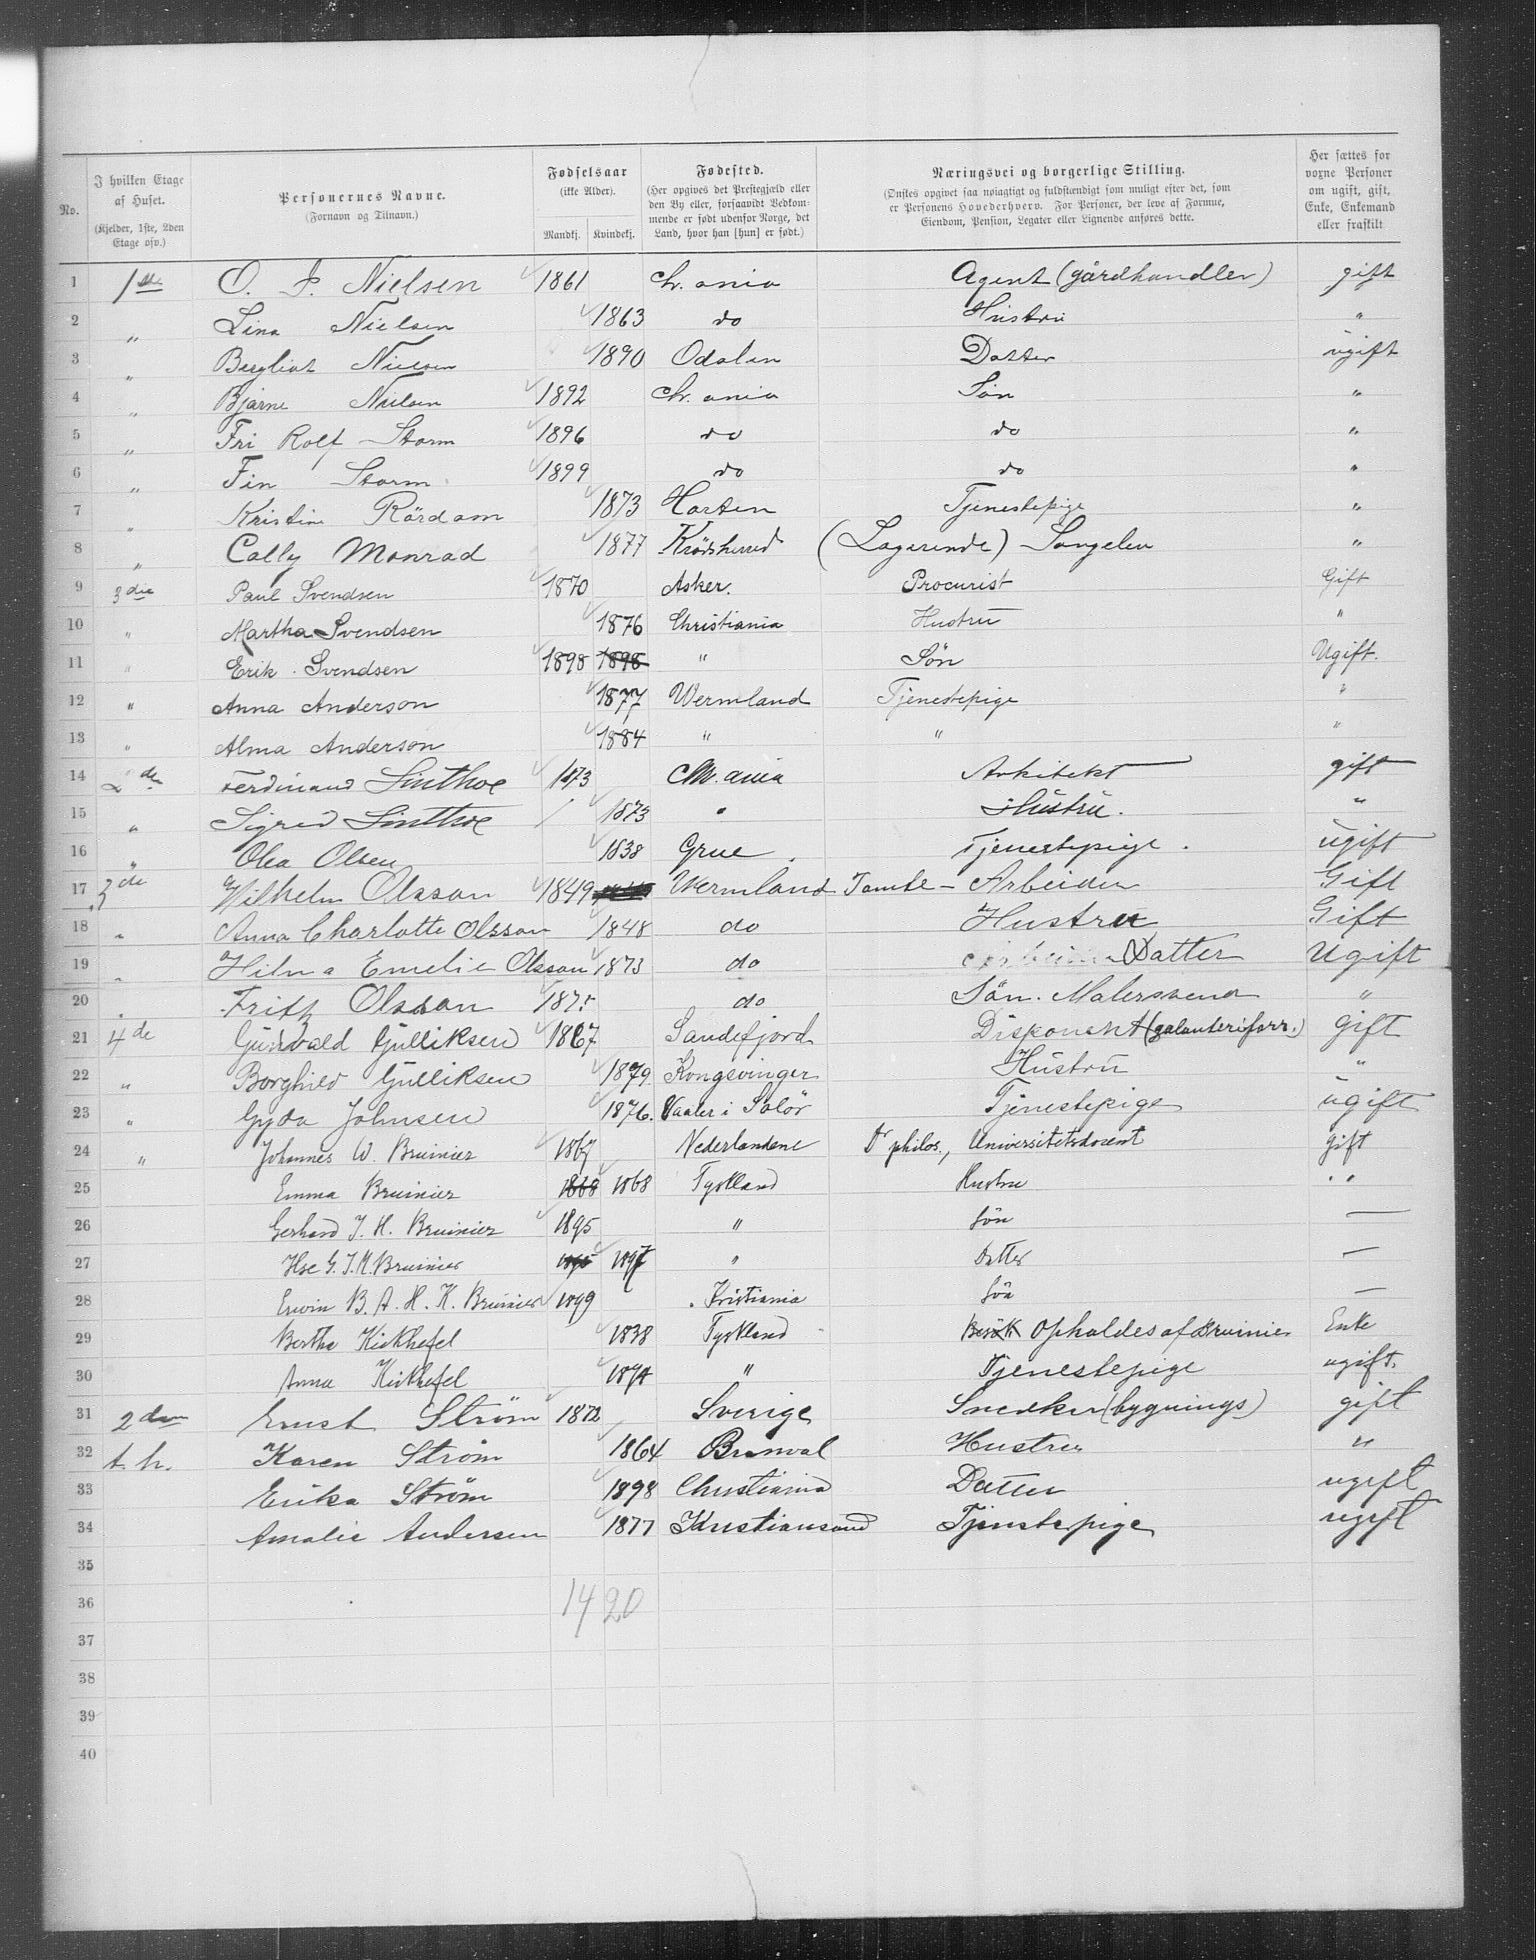 No. I hvilken Etage af Huset. (Kjelder, 1ste, 2den Etage osv.) Personernes Navne. (Fornavn og Tilnavn.) Fødselsaar (ikke Alder). Mandkj. Kvindekj. Fødested. (Her opgives det Prestegjæld eller den By eller, forsaavidt Vedkommende er født udenfor Norge, det Land, hvor han [hun] er født.) Næringsvei og borgerlige Stilling. (Ønskes opgivet saa nøiagtigt og fuldstændigt som muligt efter det, som er Personens Hovederhverv. For Personer, der leve af Formue, Eiendom, Pension, Legater eller Lignende anføres dette. Her sættes for voxne Personer om ugift, gift, Enke, Enkemand eller fraskilt
1 1ste O. J. Nielsen 1861 Chr.ania Agent (gårdhandler) gift
2 " Lina Nielsen 1863 do Hustru "
3 " Bergliot Nielsen 1890 Odalen Datter ugift
4 " Bjarne Nielsen 1892 Chr.ania Søn "
5 " Fri Rolf Storm 1896 do do "
6 " Fin Storm 1899 do do "
7 " Kristine Rördam 1873 Horten Tjenestepige "
8 " Cally Monrad 1877 Krödsherred (Logerende) Sangelev "
9 3die Paul Svendsen 1870 Asker. Procurist Gift
10 " Martha Svendsen 1876 Christiania Hustru "
11 " Erik Svendsen 1898 1898 " Søn Ugift.
12 " Anna Anderson 1877 Wermland Tjenestepige "
13 " Alma Anderson 1884 " " "
14 2den Ferdinand 1873 Chr.ania Arkitekt gift
15 " Sigrid 1873 " Hustru. "
16 " Olea Olsen 1838 Grue Tjenestepige. ugift
17 3de Wilhelm Olsson 1849 Wermland Tomte-Arbeider Gift
18 " Anna Charlotte Olsson 1848 do Hustru Gift
19 " Hilma Emelie Olsson 1873 do Datter Ugift
20 " Fritz Olsson 187 do Søn. Malersvend "
21 4de Gunvald Gulliksen 1867 Sandefjord Disponent (galanteriforr.) gift
22 " Borghild Gulliksen 1879 Kongsvinger Hustru "
23 " Gyda Johnsen 1876. Vaaler i Solör Tjenestepige ugift
24 " Johannes W. Bruinier 1867 Nederlandene Dr philos., Universitetsdocent gift
25 Emma Bruinier 1868 1868 Tyskland Hustru "
26 Gerhard J. H. Bruinier 1895 " Søn —
27 Ilse G. J. M. Bruinier 1897 " Datter —
28 Erwin B. A. H. K. Bruinier 1899 Kristiania Søn —
29 Bertha Kirkhefel 1838 Tyskland Besök Opholdes af Bruinier Enke
30 Anna Kirkhefel 1874 " Tjenestepige ugift.
31 2den Ernst Ström 1872 Sverige Snedker (bygnings) gift
32 t. h. Karen Ström 1864 Hustru "
33 Erika Ström 1898 Christiania Datter ugift
34 Amalie Andersen 1877 Kristiansand Tjenstepige ugift
35
36 14 20
37
38
39
40